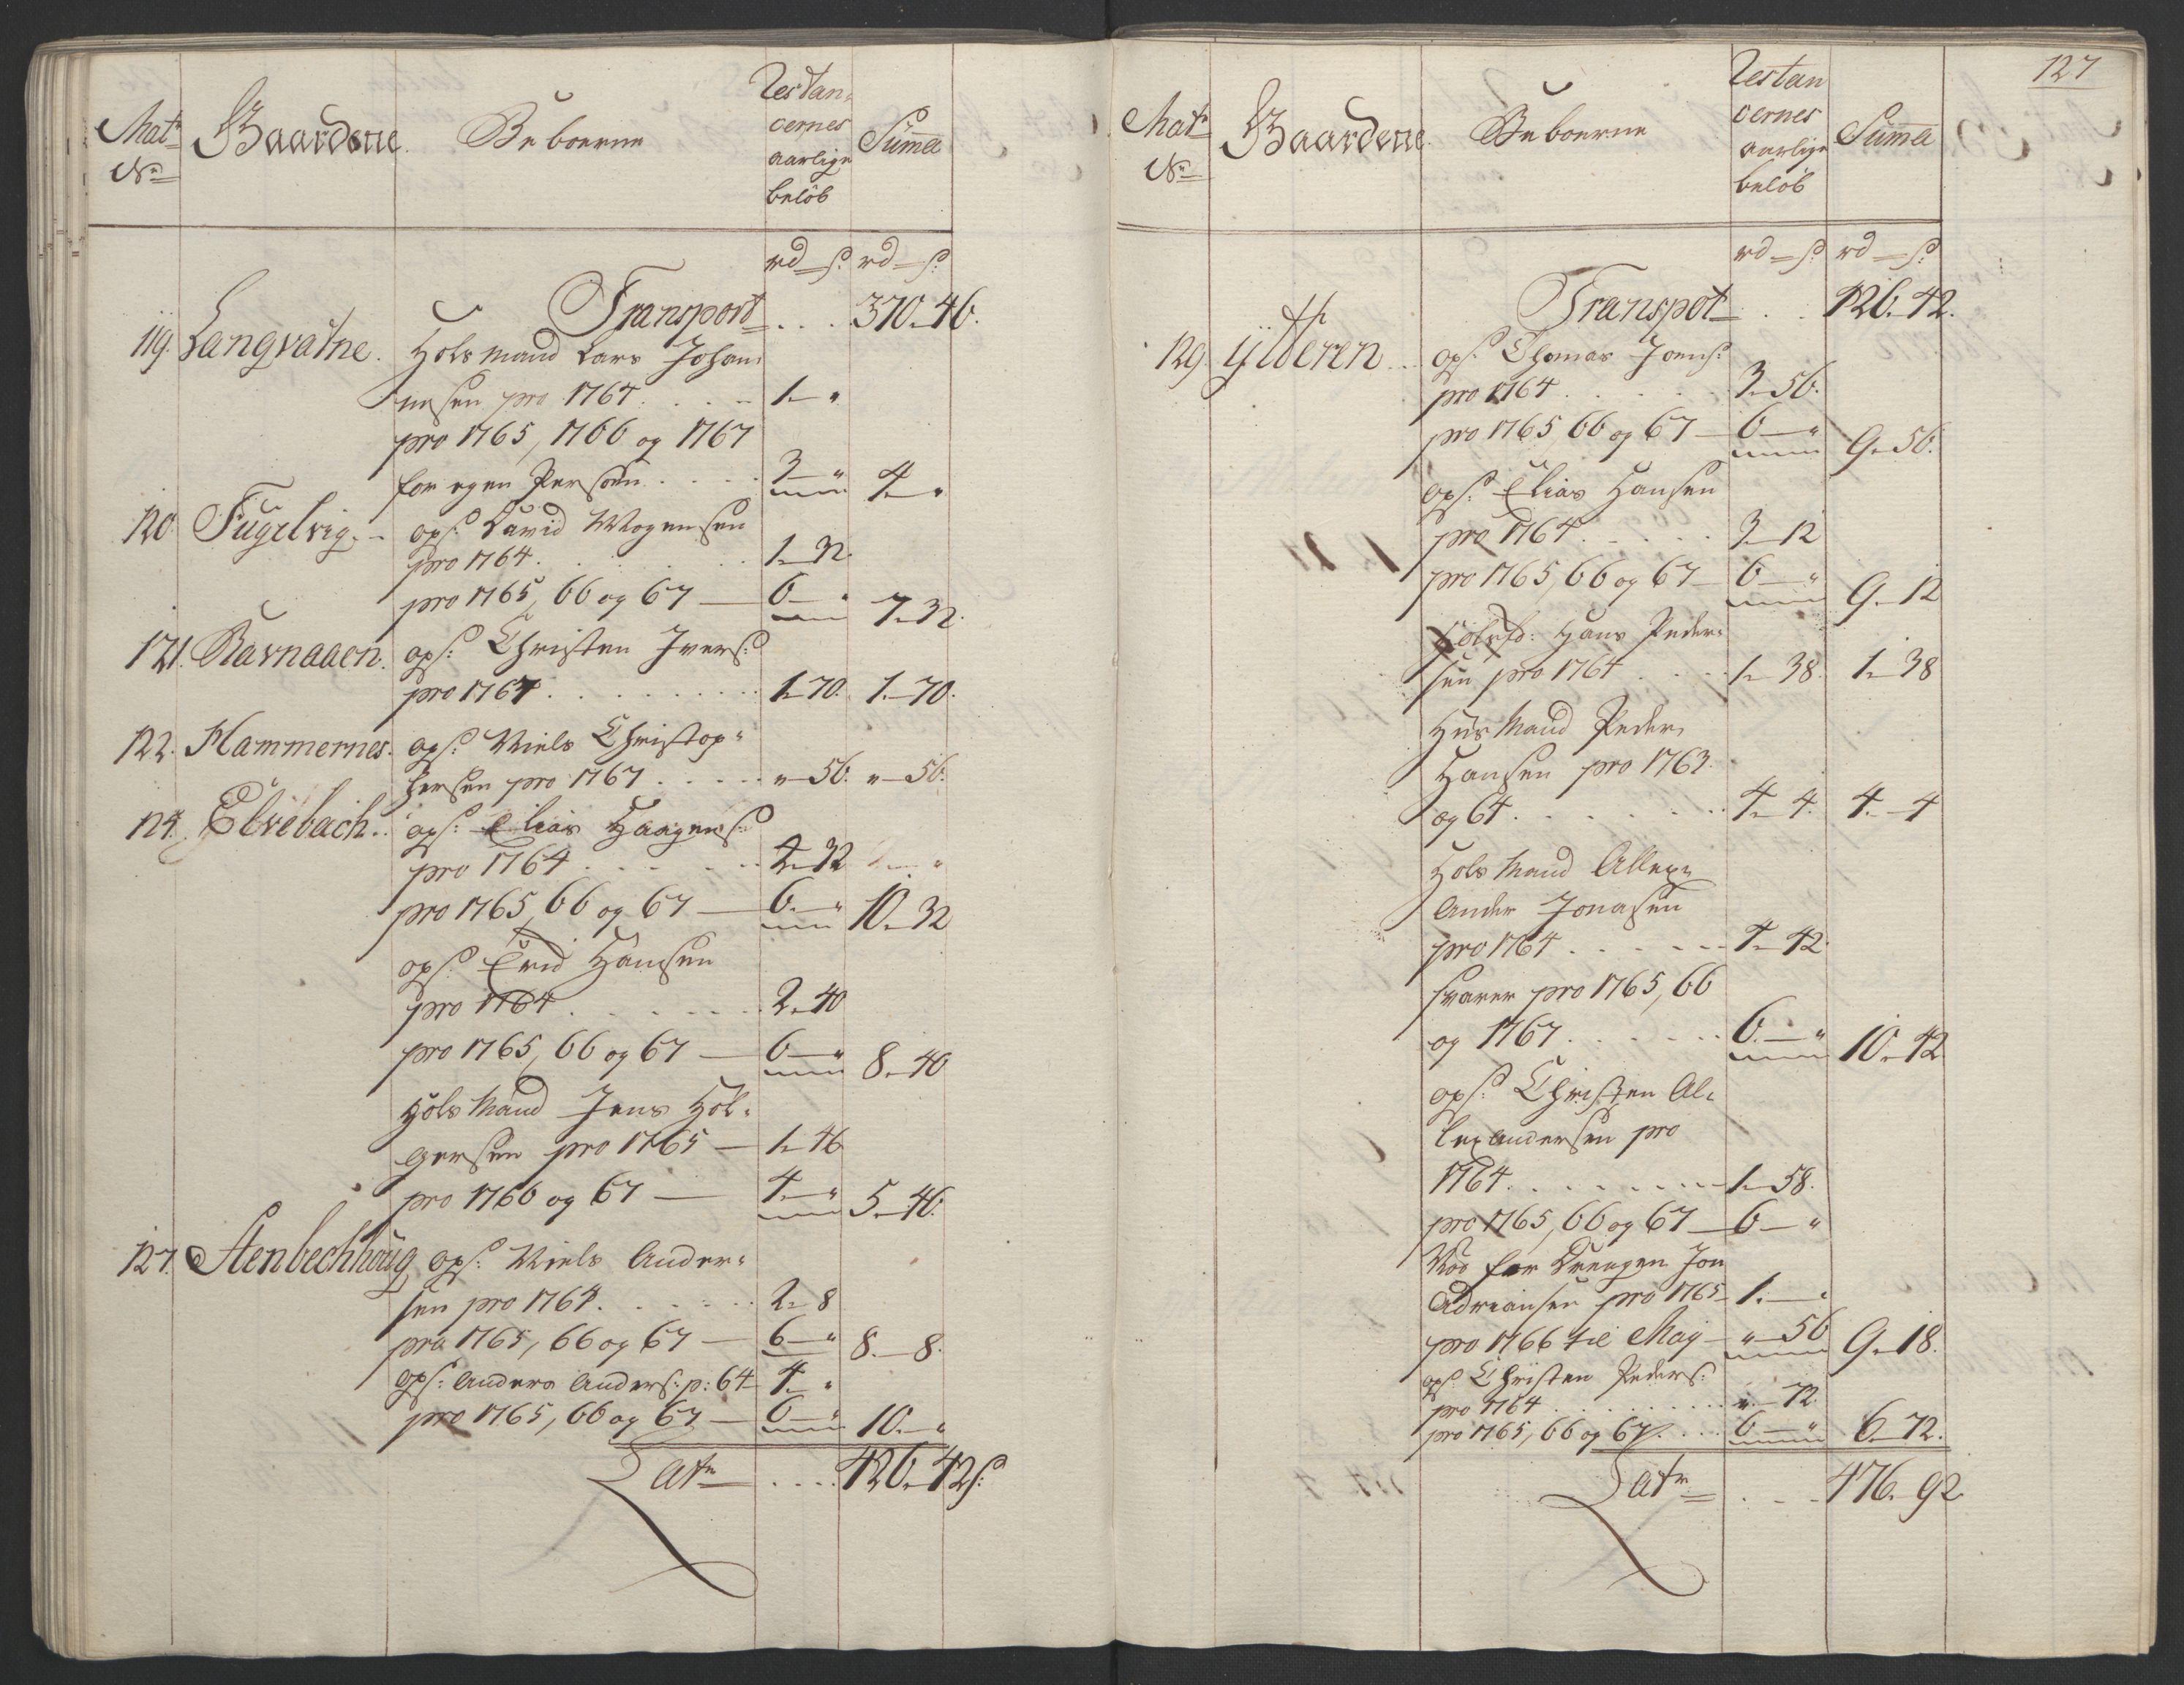 Mat:
No
Gaardene.
Beboerne
Restan-
cernes
aarlige
beløb
Summa
rd – s: rd – s:
Transport . . . 370. 46.
119. Langvatne. Holdsmand Lars Johan-
nesen pro 1764 . . . 1 – "
pro 1765, 1766 og 1767
for egen Persohn . . . 3 – " 4 – "
120. Fugelvig. ops: David Mogensen
pro 1764 . . . 1 – 32.
pro 1765, 66 og 67 – 6 – " 7. 32.
121. Ravnaaen. ops: Christen Ivers:
pro 1767 . . . 1 – 70. 1. – 70.
122. Hammernes. ops: Niels Christop-
hersen pro 1767 . . . " – 56. " – 56.
124. Elvebach. ops: Elias Haagens:
pro 1764 . . . 4 – 32
pro 1765, 66 og 67 – 6. – " 10. – 32
ops: Erid Hansen
pro 1764 . . . 2. 40
pro 1765, 66 og 67 – 6 – " 8. – 40
Holdsmand Jens Hol-
gersen pro 1765 – 1. 46
pro 1766 og 67 – 4. – " 5. – 46.
127. Stenbechhoug ops: Niels Ander-
sen pro 1764. . . . 2. 8
pro 1765, 66 og 67 – 6 – " 8. – 8.
ops: Anders Anders: p: 64 4. "
pro 1765, 66 og 67 – 6 – " 10. – "
Latr . . . 426. 42 s:
127
Mat:
No
Gaardene.
Beboerne
Restan
cernes
aarlige
beløb
Summa
rd – s: rd – s:
Transpot . . 426. 42.
129. Ytteren . . ops: Thomas Joens:
pro 1764 . . . 3. 56.
pro 1765, 66 og 67 – 6 – " 9. 56.
ops: Elias Hansen
pro 1764 . . . 3 – 12
pro 1765, 66 og 67 – 6 – " 9. – 12
Hans Peder-
sen pro 1764 . . . 1. – 38. 1. – 38
Huusmand Peder
Hansen pro 1763.
og 64 . . . 4 – 4. 4. – 4
Holdsmand Allex-
ander Jonasen
pro 1764 . . . 4. – 42.
svarer pro 1765, 66
og 1767 . . . 6. – " 10. – 42
ops: Christen Al-
lexandersen pro
1764 . . . 1. – 58.
pro 1765, 66 og 67 – 6 – "
Nos for Drengen Jon
Adriansen pro 1765 – 1. – "
pro 1766 til Maj – " – 56 9. – 18.
ops: Christen Peders:
pro 1764 . . . " – 72.
pro 1765, 66 og 67 . . . 6 – " 6. – 72.
Latr . . . 476. – 92.